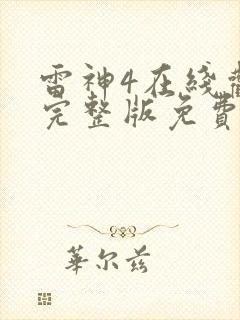 雷神4在线
完整版免費
華尔兹